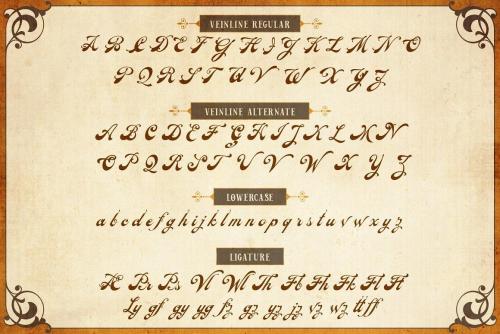 VEINLINE REGULAR
A B C D E F G H I J K L M N O
P Q R S T U V W X Y Z
VEINLINE ALTERNATE
A B C D E F G H I J K L M N
O P Q R S T U V W X Y Z
LOWERCASE
a b c d e f g h i j k l m n o p q r s t u v w x y z
LIGATURE
Vl Wl Th
Ly gf gy yg fz gz yz jz vz wz tt ff